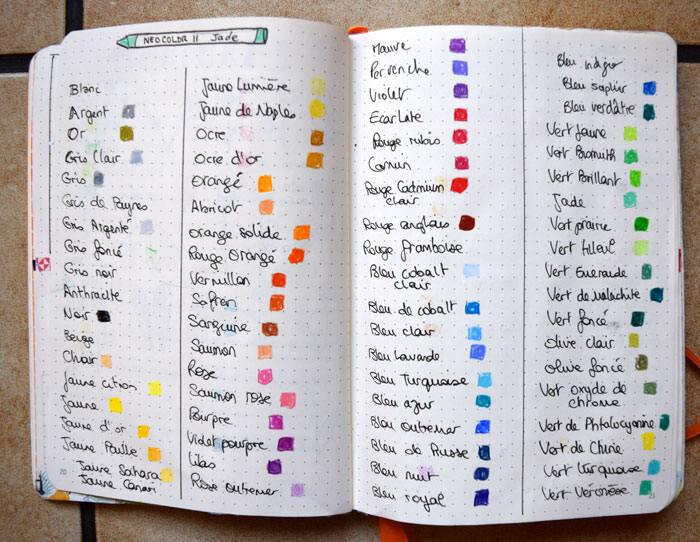 NEOCOLOR II Jade
Blanc
Argent
Or
Gris Clair
Gris
Gris de Paynes
Gris Argenté
Gris foncé
Gris noir
Anthracite
Noir
Beige
Chair
Jaune citron
Jaune
Jaune d'or
Jaune Paille
Jaune Sahara
Jaune Canari
20
Jaune Lumière
Jaune de Naples
Ocre
Ocre d'or
Orangé
Abricot
Orange solide
Rouge Orangé
Vermillon
Safran
Sanguine
Saumon
Rose
Saumon rose
Pourpre
Violet pourpre
Lilas
Rose outremer
Mauve
Pervenche
Violet
Ecarlate
Rouge rubis
Carmin
Rouge Cadmium
clair
Rouge anglais
Rouge framboise
Bleu cobalt
clair
Bleu de cobalt
Bleu clair
Bleu Lavande
Bleu Turquoise
Bleu azur
Bleu outremer
Bleu de Prusse
Bleu nuit
Bleu royal
Bleu indigo
Bleu saphir
Bleu verdâtre
Vert Jaune
Vert
Vert Brillant
Jade
Vert prairie
Vert tilleul
Vert Emeraude
Vert de Malachite
Vert foncé
Olive clair
Olive foncé
Vert oxyde de
chrome
Vert de Phtalocyanine
Vert de Chine
Vert Turquoise
Vert Véronèse
21